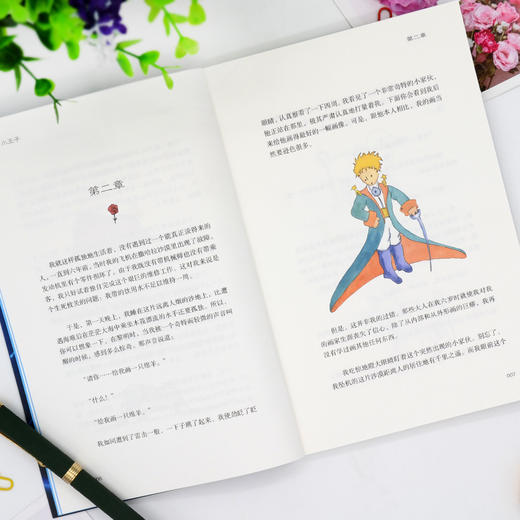 小王子
第二章
我就这样孤独地生活着，没有遇到过一个能真正谈得来的
人，一直到六年前，当时我的飞机在撒哈拉沙漠里出现了故障。
发动机里有个零件损坏了，由于我既没有带机械师也没有带乘
客，我只好试着独自完成这个艰巨的维修工作。这对我来说是
个生死攸关的问题：我带的饮用水不足以维持一周。
于是，第一天晚上，我睡在这片远离人烟的沙地上，比遭
遇海难后在茫茫大海中乘坐木筏漂流的水手还要孤独。所以，
你可以想象一下，在黎明时，当我被一个奇特而轻微的声音叫
醒的时候，感到多么惊奇。那声音说道：
“请你……给我画一只绵羊。”
“什么！”
“给我画一只绵羊。”
我如同遭到了雷击一般，一下子跳了起来，我使劲眨了眨
第二章
眼睛，认真察看了一下四周。我看见了一个非常奇特的小家伙，
他正站在那里，极其严肃认真地打量着我。下面你会看到我后
来给他画得最好的一幅画像。可是，跟他本人相比，我的画当
然要逊色很多。
但是，这并非我的过错。那些大人在我六岁时就使我对我
的画家生涯丧失了信心，除了从内部和从外部画的巨蟒，我再
没有学过画其他任何东西。
我吃惊地瞪大眼睛盯着这个突然出现的小家伙。别忘了，
我坠机的这片沙漠距离人的居住地有千里之遥。而我眼前这个
007